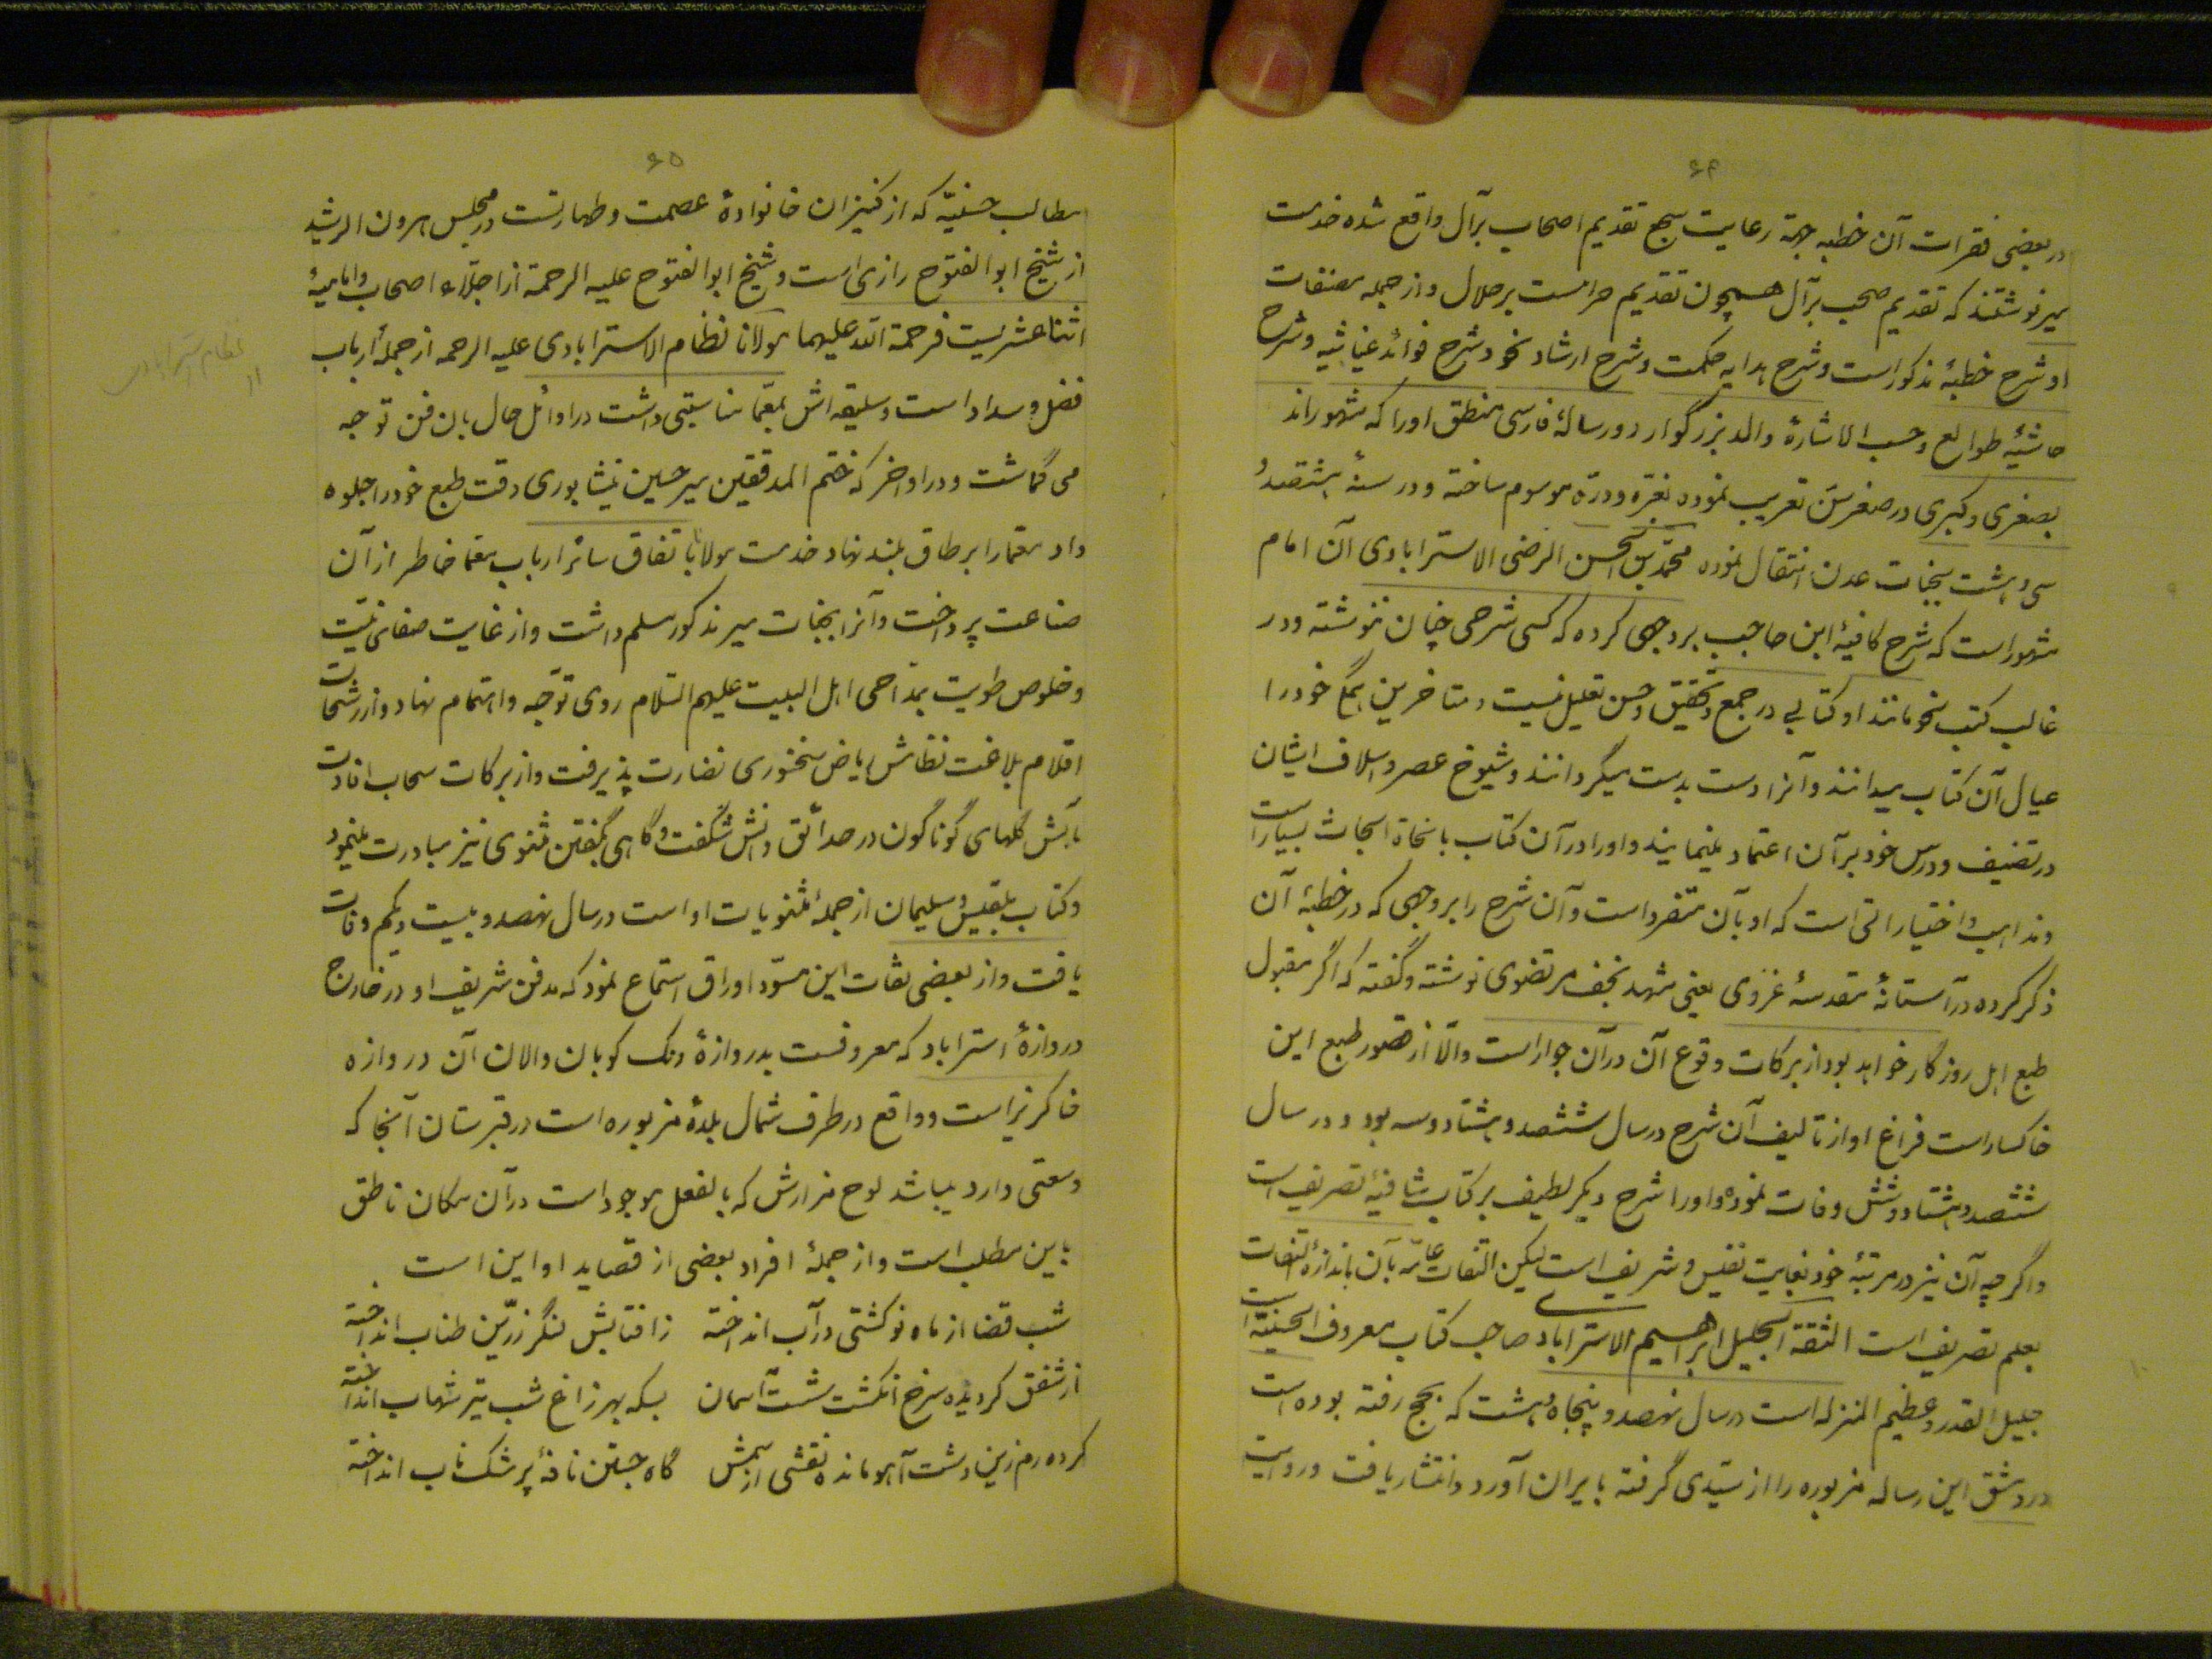 ۶۴
در بعضی فقرات آن خطبه جهة رعایت سجع تقدیم اصحاب بر آل واقع شده خدمت
میر نوشتند که تقدیم صحب بر آل همچون تقدیم حرامست بر حلال و از جمله مصنفات
او شرح خطبهٔ مذکور است و شرح هدایه حکمت و شرح ارشاد نحو و شرح فوائد غیاثیه و شرح
حاشیهٔ طوالع و حسب الاشارهٔ والد بزرگوار دو رسالهٔ فارسی منطق او را که مشهوراند
بصغری و کبری در صغر سن تعریب نموده بغره و دره موسوم ساخته و در سنهٔ هشتصد و
سی و هشت بجنات عدن انتقال نموده محمد بن الحسن الرضی الاسترابادی آن امام
مشهور است که شرح کافیهٔ ابن حاجب بر وجهی کرده که کسی شرحی چنان ننوشته و در
غالب کتب نحو مانند او کتابی در جمع و تحقیق و حسن تعلیل نیست و متاخرین همگی خود را
عیال آن کتاب میدانند و آنرا دست بدست میگردانند و شیوخ عصر و اسلاف ایشان
در تصنیف و درس خود بر آن اعتماد مینمایند و او را در آن کتاب با نحاة ابحاث بسیار است
و مذاهب و اختیاراتی است که او بآن متفرد است و آن شرح را بر وجهی که در خطبهٔ آن
ذکر کرده در آستانهٔ مقدسهٔ غروی یعنی مشهد نجف مرتضوی نوشته و گفته که اگر مقبول
طبع اهل روزگار خواهد بود از برکات وقوع آن در آن جوار است والّا از قصور طبع این
خاکسار است فراغ او از تالیف آن شرح در سال ششصد و هشتاد و سه بود و در سال
ششصد و هشتاد و شش وفات نموده و او را شرح دیگر لطیف بر کتاب شافیهٔ تصریف است
و اگر چه آن نیز در مرتبهٔ خود بغایت نفیس و شریف است لیکن التفات عامّه بآن باندازهٔ التفات
بعلم تصریف است الثقة الجلیل ابراهیم الاسترابادی صاحب کتاب معروف الحسنیّة است
جلیل القدر و عظیم المنزله است در سال نهصد و پنجاه و هشت که بحج رفته بوده است
در دمشق این رساله مزبوره را از سیّدی گرفته بایران آورد و انتشار یافت و روایت
۶۵
مطالب حسنیّه که از کنیزان خانوادهٔ عصمت و طهارتست در مجلس هرون الرشید
از شیخ ابوالفتوح رازی است و شیخ ابوالفتوح علیه الرحمة از اجلّاء اصحاب و امامیهٔ
اثنا عشریست فرحمة الله علیهما مولانا نظام الاسترابادی علیه الرحمه از جملهٔ ارباب
فضل و سداد است و سلیقه اش بمعمّا مناسبتی داشت در اوائل حال بان فن توجه
می گماشت و در اواخر که ختم المدققین میر حسین نیشابوری دقت طبع خود را جلوه
داد معما را بر طاق بلند نهاد خدمت مولانا باتفاق سائر ارباب معما خاطر از آن
صناعت پرداخت و آنرا بجناب میر مذکور مسلم داشت و از غایت صفای نیّت
و خلوص طویت بمدّاحی اهل البیت علیهم السّلام روی توجّه و اهتمام نهاد و از رشحات
اقلام بلاغت نظامش ریاض سخنوری نضارت پذیرفت و از برکات سحاب افادت
مآبش گلهای گوناگون در حدائق دانش شگفت و گاهی بگفتن مثنوی نیز مبادرت مینمود
و کتاب بلقیس و سلیمان از جملهٔ مثنویات او است در سال نهصد و بیست و یکم وفات
یافت و از بعضی ثقات این مسوّد اوراق استماع نمود که مدفن شریف او در خارج
دروازهٔ استراباد که معروفست بدروازهٔ دنک کوبان والان آن دروازه
خاکریز است و واقع در طرف شمال بلدهٔ مزبوره است در قبرستان آنجا که
وسعتی دارد میباشد لوح مزارش که بالفعل موجود است در آن مکان ناطق
باین مطلب است و از جملهٔ افراد بعضی از قصاید او این است
شب قضا از ماه نو کشتی در آب انداخته زافتابش لنگر زرّین طناب انداخته
از شفق کردیده سرخ انگشت شست آسمان بسکه بهر زاغ شب تیر شهاب انداخته
کرده رم زین دشت آهو مانده نقشی از سمش گاه جستن نافهٔ پر مشک ناب انداخته
نظام استرابادی